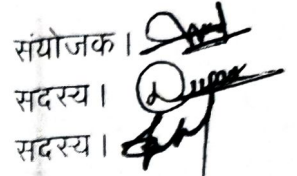 संयोजक।
सदस्य।
सदस्य।